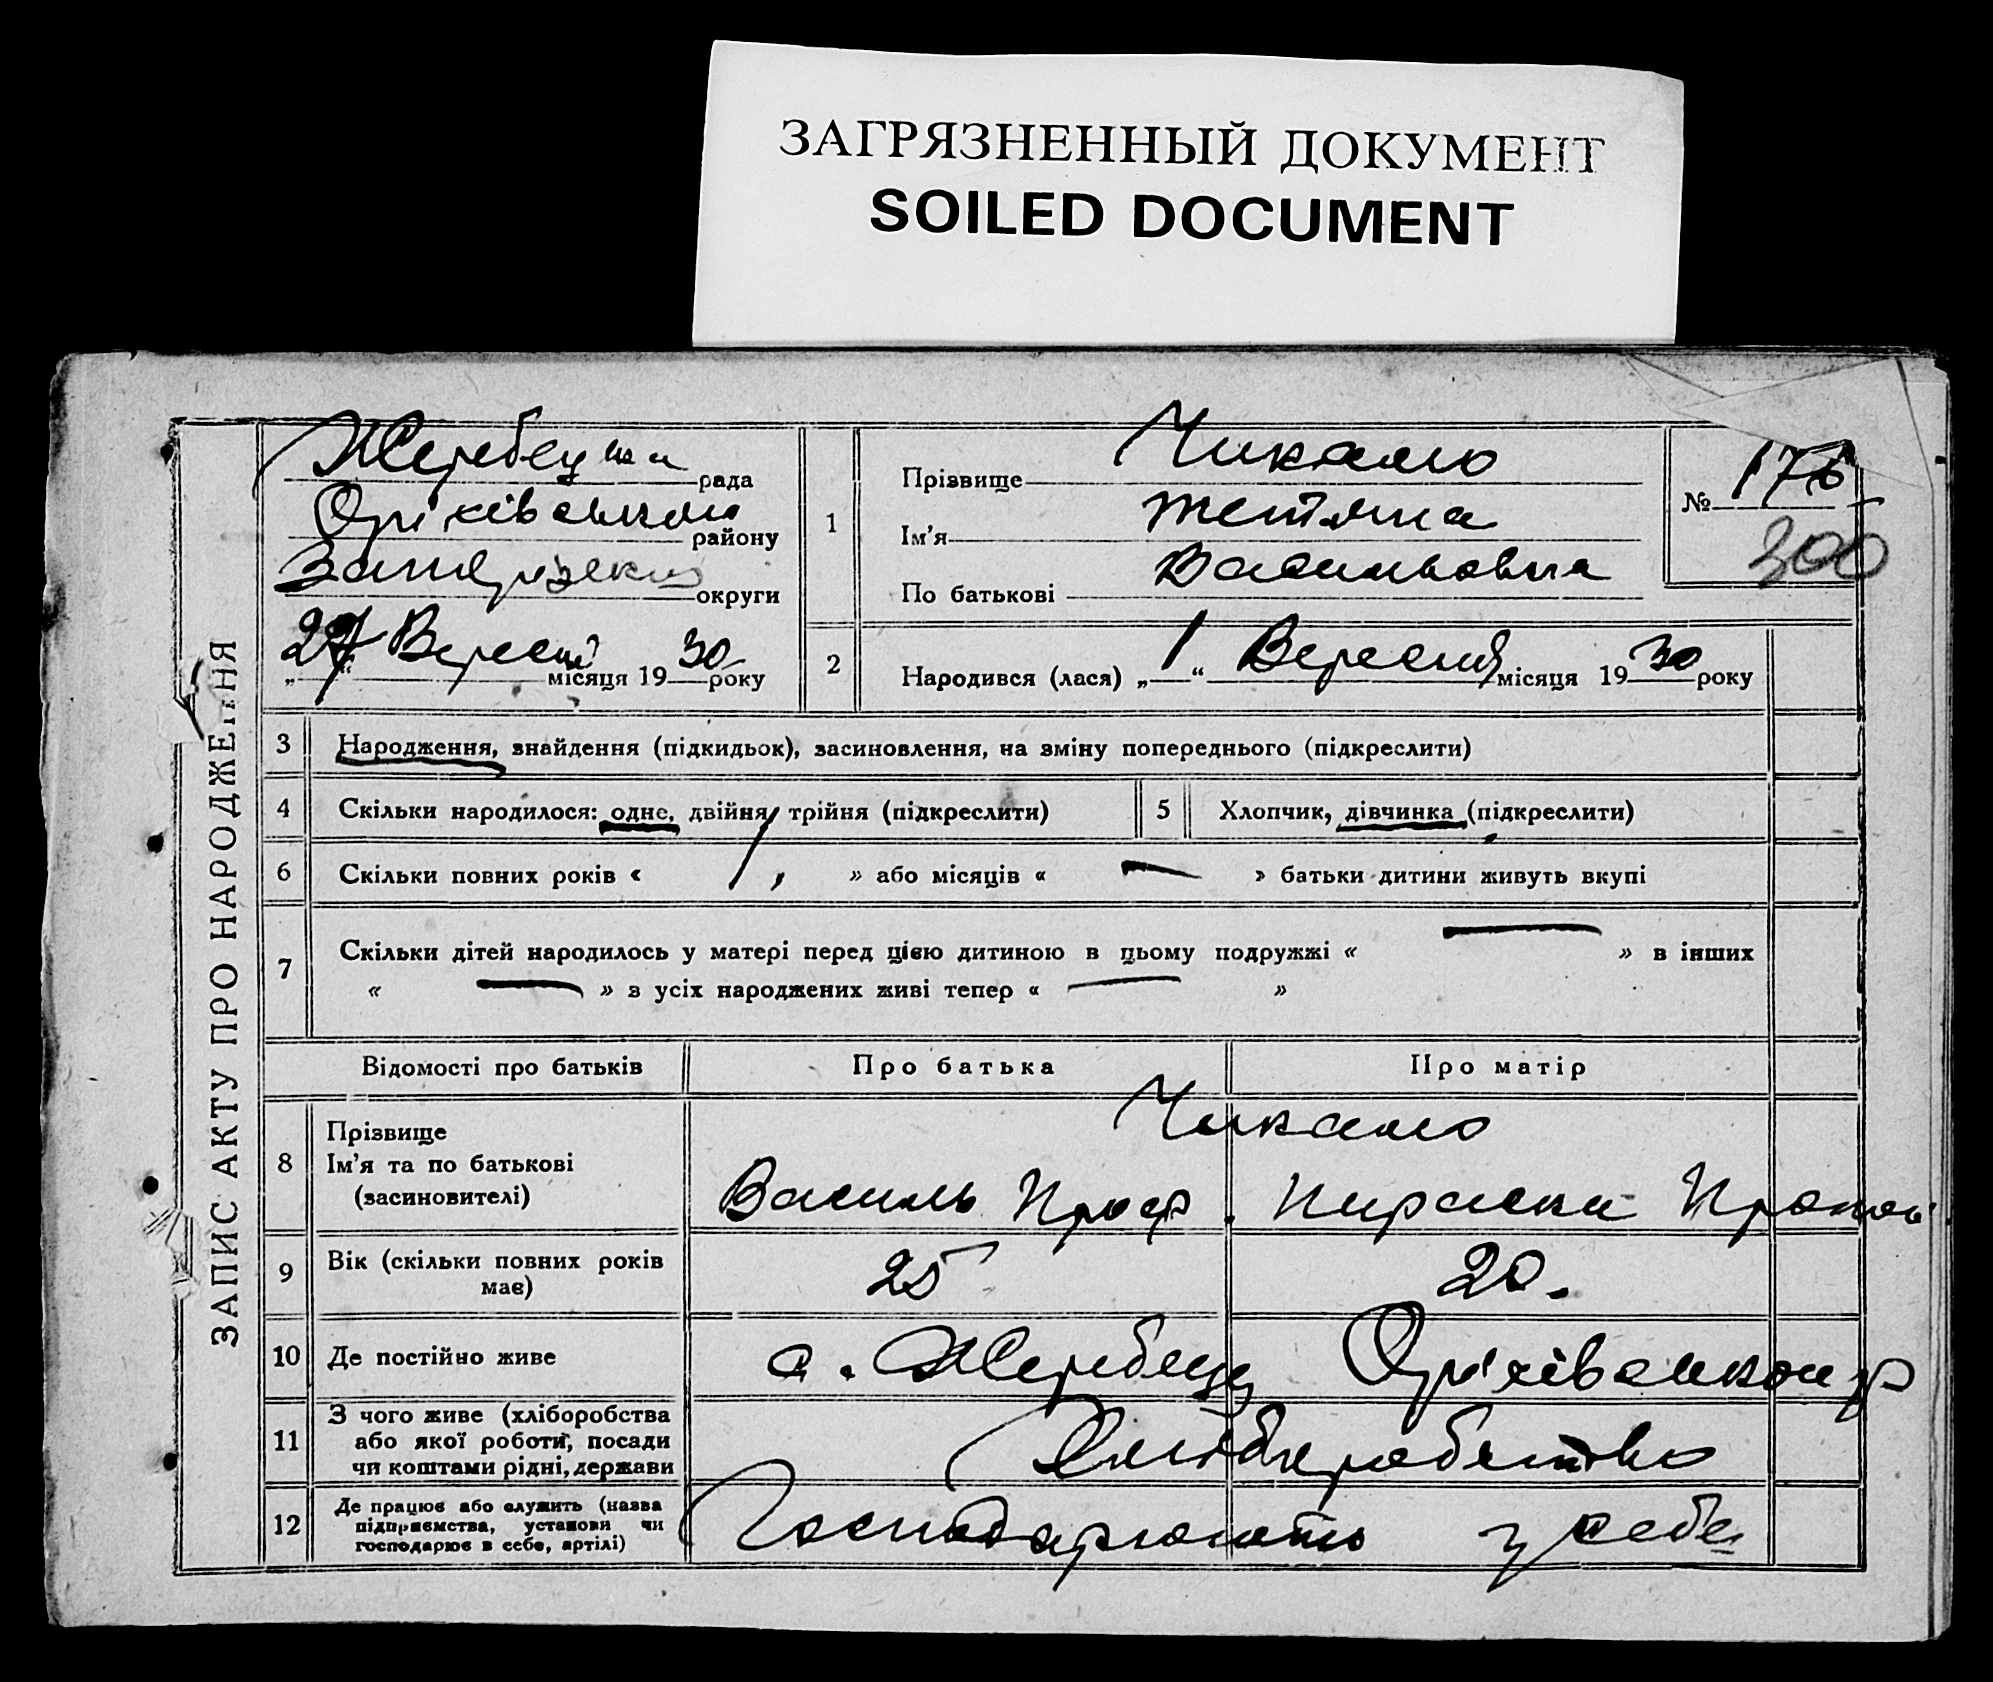 ЗАГРЯЗНЕННЫЙ ДОКУМЕНТ
SOILED DOCUMENT
ЗАПИС АКТУ ПРО НАРОДЖЕННЯ
Жеребецька рада
Оріхівського району
Запорізької округи
„27“ Вересня місяця 1930 року
1
Прізвище Чикало
Ім'я Тетяна
По батькові Васильовна
№ 176
300
2
Народився (лася) „1“ Вересня місяця 1930 року
3 Народження, знайдення (підкидьок), засиновлення, на зміну попереднього (підкреслити)
4 Скільки народилося: одне, двійня, трійня (підкреслити)
5 Хлопчик, дівчинка (підкреслити)
6 Скільки повних років « 1 » або місяців « — » батьки дитини живуть вкупі
7 Скільки дітей народилось у матері перед цією дитиною в цьому подружжі « — » в інших
« — » з усіх народжених живі тепер « — »
Відомості про батьків Про батька Про матір
8 Прізвище
Ім'я та по батькові
(засиновителі)
Чикало
Василь Проф. Параска
9 Вік (скільки повних років
має)
25 20.
10 Де постійно живе с. Жеребець Оріхівськ. р
11 З чого живе (хліборобства
або якої роботи, посади
чи коштами рідні, держави
Хліборобство
12 Де працює або служить (назва
підприємства, установи чи
господарює в себе, артілі)
Господарюють у себе